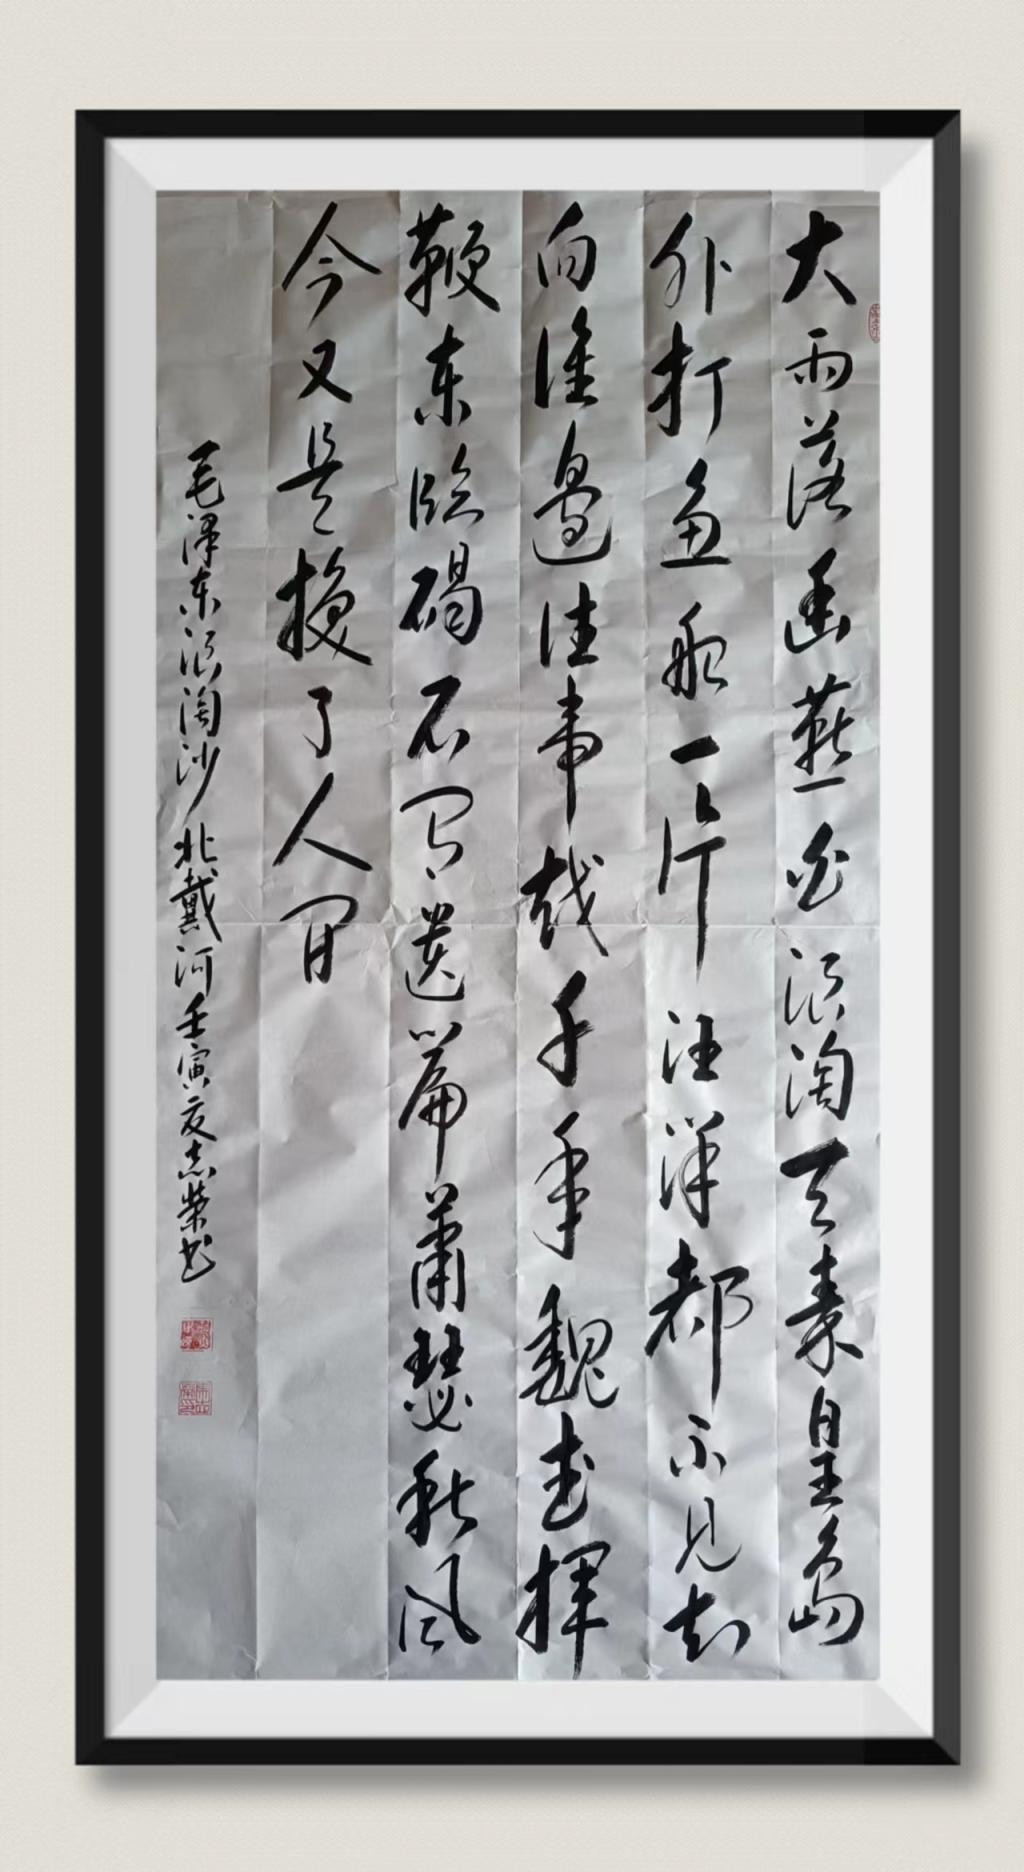 大雨落幽燕白浪淘天秦皇島
外打鱼船一片汪洋都不见知
向谁邊往事越千年魏武揮
鞭东臨碣石有遗篇蕭瑟秋风
今又是换了人间
毛泽东浪淘沙北戴河壬寅夏志荣书